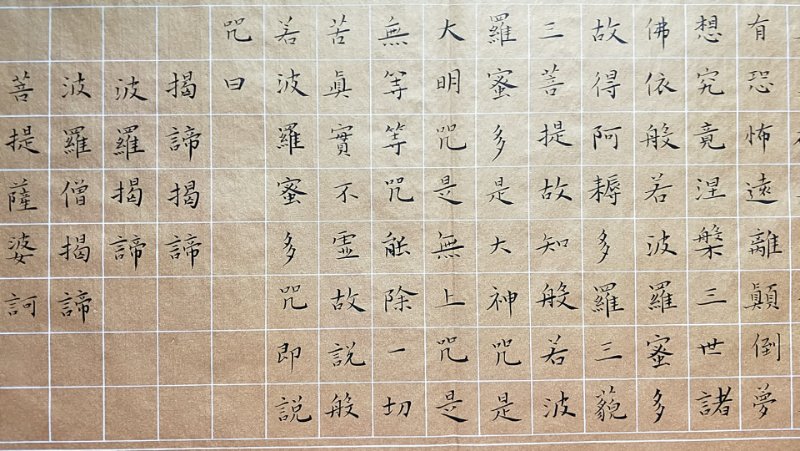 有恐怖遠離顚倒夢
想究竟涅槃三世諸
佛依般若波羅蜜多
故得阿耨多羅三藐
三菩提故知般若波
羅蜜多是大神咒是
大明咒是無上咒是
無等等咒能除一切
苦眞實不虛故説般
若波羅蜜多咒即説
咒曰
揭諦揭諦
波羅揭諦
波羅僧揭諦
菩提薩婆訶